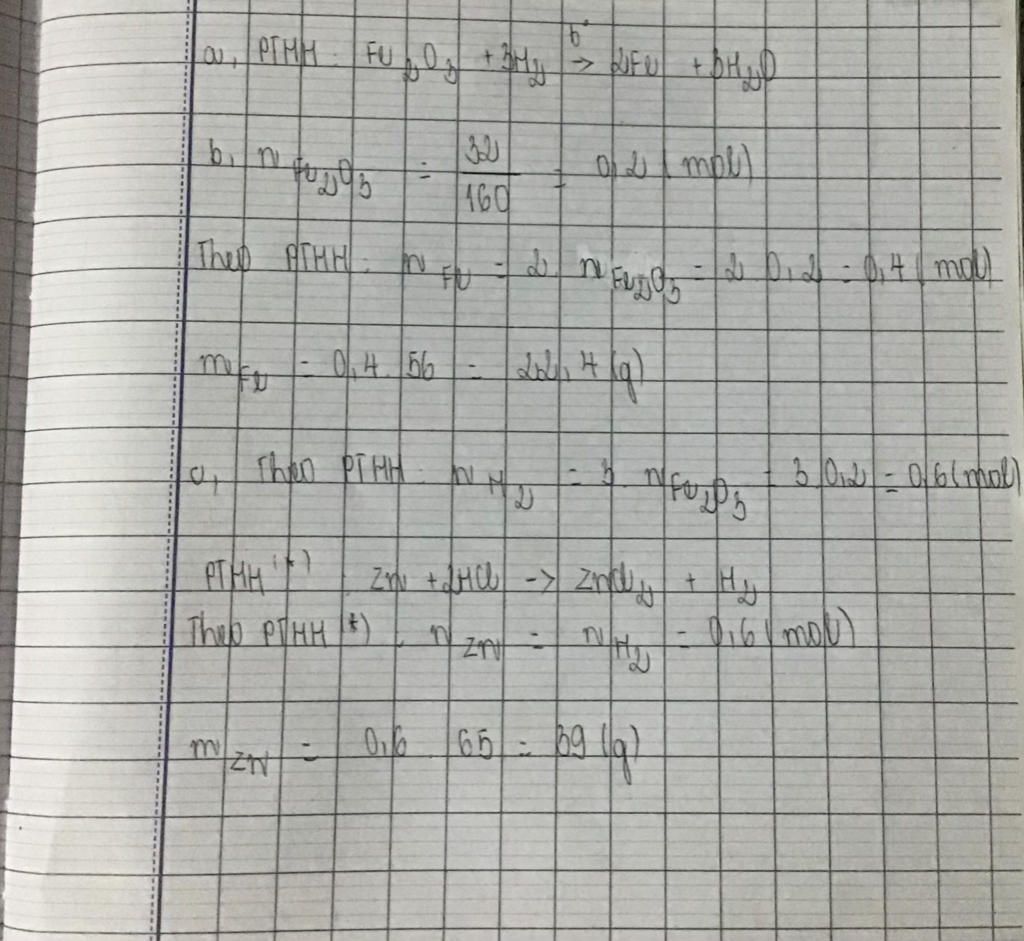 a, PTHH: Fe₂O₃ + 3H₂ →(t°) 2Fe + 3H₂O
b, n Fe₂O₃ = 32/160 = 0,2 (mol)
Theo PTHH: n Fe = 2. n Fe₂O₃ = 2.0,2 = 0,4 (mol)
m Fe = 0,4.56 = 22,4 (g)
c, Theo PTHH: n H₂ = 3 n Fe₂O₃ = 3.0,2 = 0,6 (mol)
PTHH (*) Zn + 2HCl -> ZnCl₂ + H₂
Theo PTHH (*). n Zn = n H₂ = 0,6 (mol)
m Zn = 0,6 . 65 = 39 (g)